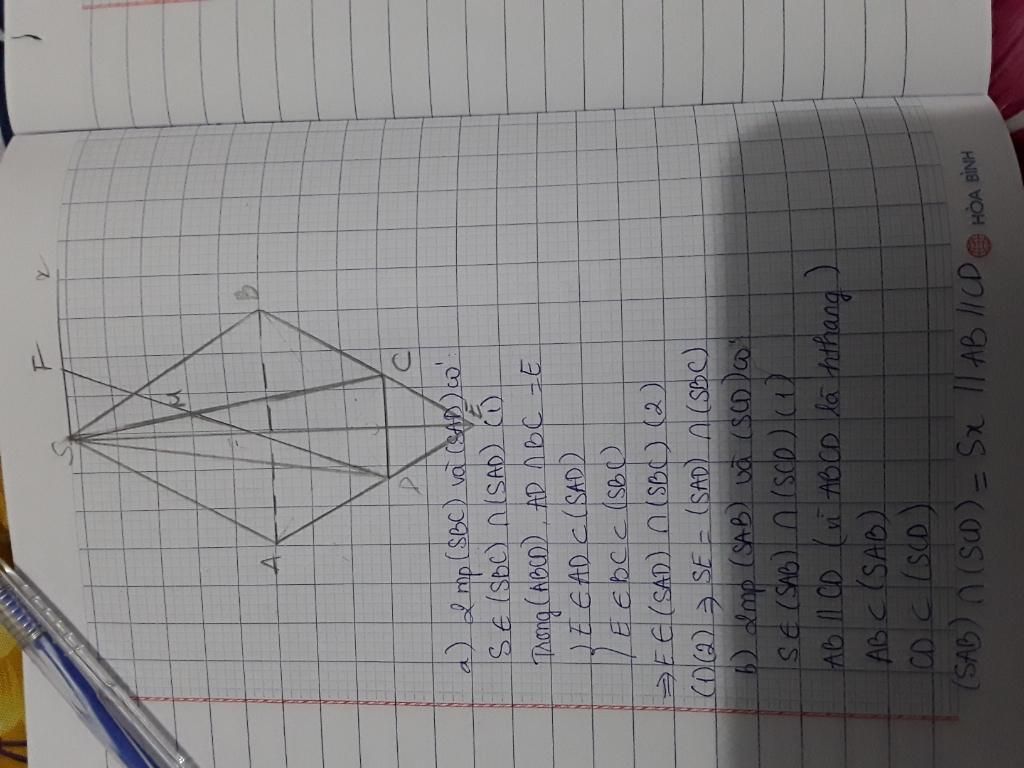 S
F
x
M
A
B
D
C
E
a) 2 mp (SBC) và (SAD) có:
S ∈ (SBC) ∩ (SAD) (1)
Trong (ABCD), AD ∩ BC = E
} E ∈ AD ⊂ (SAD)
} E ∈ BC ⊂ (SBC)
⇒ E ∈ (SAD) ∩ (SBC) (2)
(1)(2) ⇒ SE = (SAD) ∩ (SBC)
b) 2mp (SAB) và (SCD) có:
S ∈ (SAB) ∩ (SCD) (1)
AB // CD (vì ABCD là hthang)
AB ⊂ (SAB)
CD ⊂ (SCD)
(SAB) ∩ (SCD) = Sx // AB // CD
HÒA BÌNH